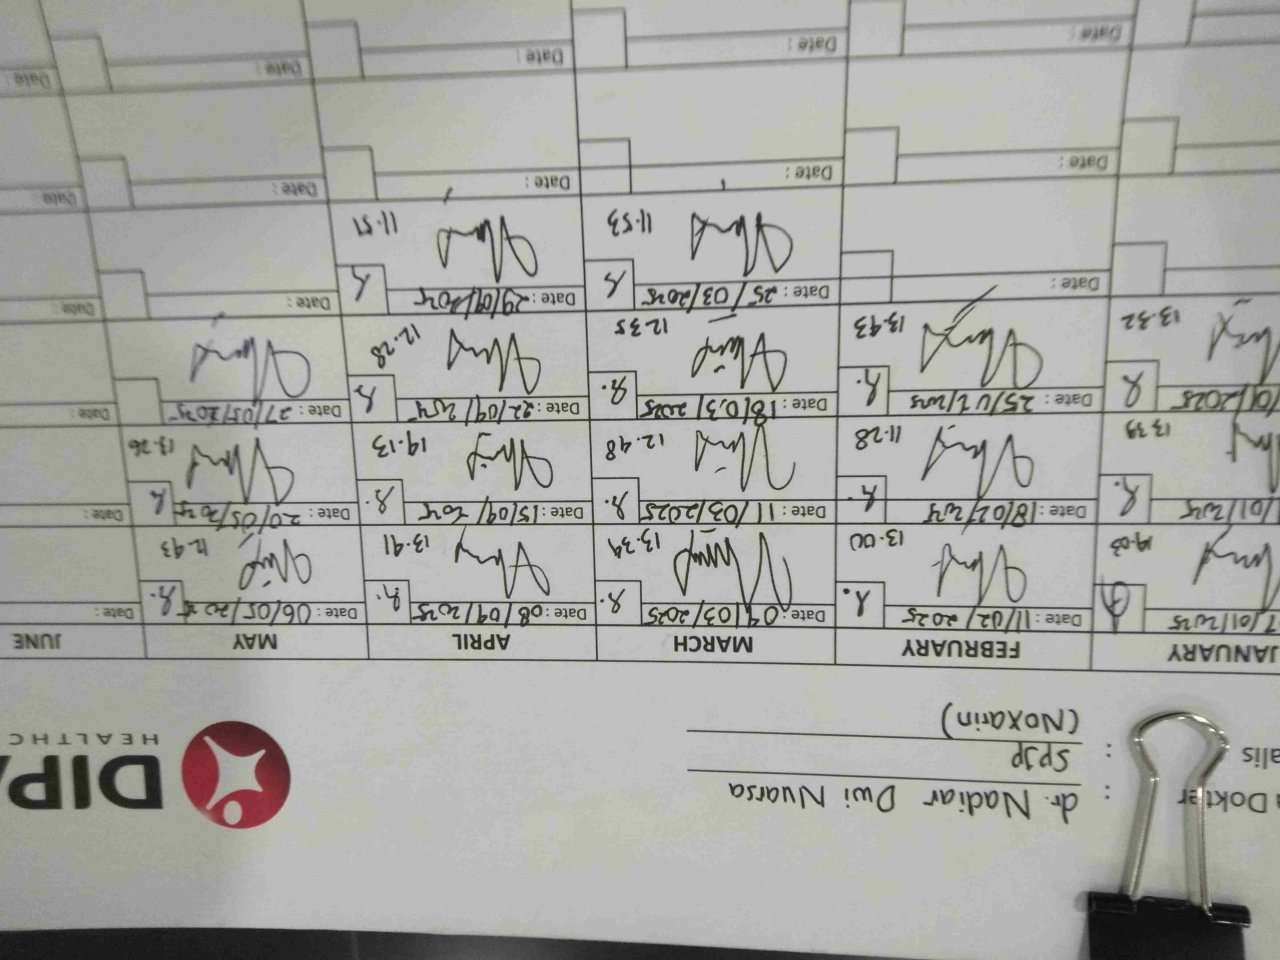 Dokter : dr. Nadiar Dwi Nuarsa
alis : SpJP
(Noxarin)
DIPA
HEALTHC
JANUARY FEBRUARY MARCH APRIL MAY JUNE
7/01/2025 Date : 11/02/2025 Date : 04/03/2025 Date : 08/04/2025 Date : 06/05/2025 Date :
14.03 13.00 13.34 13.41 12.43
/01/2025 Date : 18/02/2025 Date : 11/03/2025 Date : 15/04/2025 Date : 20/05/2025 Date :
13.39 11.28 12.48 14.13 13.26
/01/2025 Date : 25/02/2025 Date : 18/03/2025 Date : 22/04/2025 Date : 27/05/2025 Date :
13.32 13.43 12.35 12.28
Date : Date : 25/03/2025 Date : 29/04/2025 Date : Date :
11.53 11.51
Date : Date : Date : Date : Date :
Date : Date : Date : Date : Date :